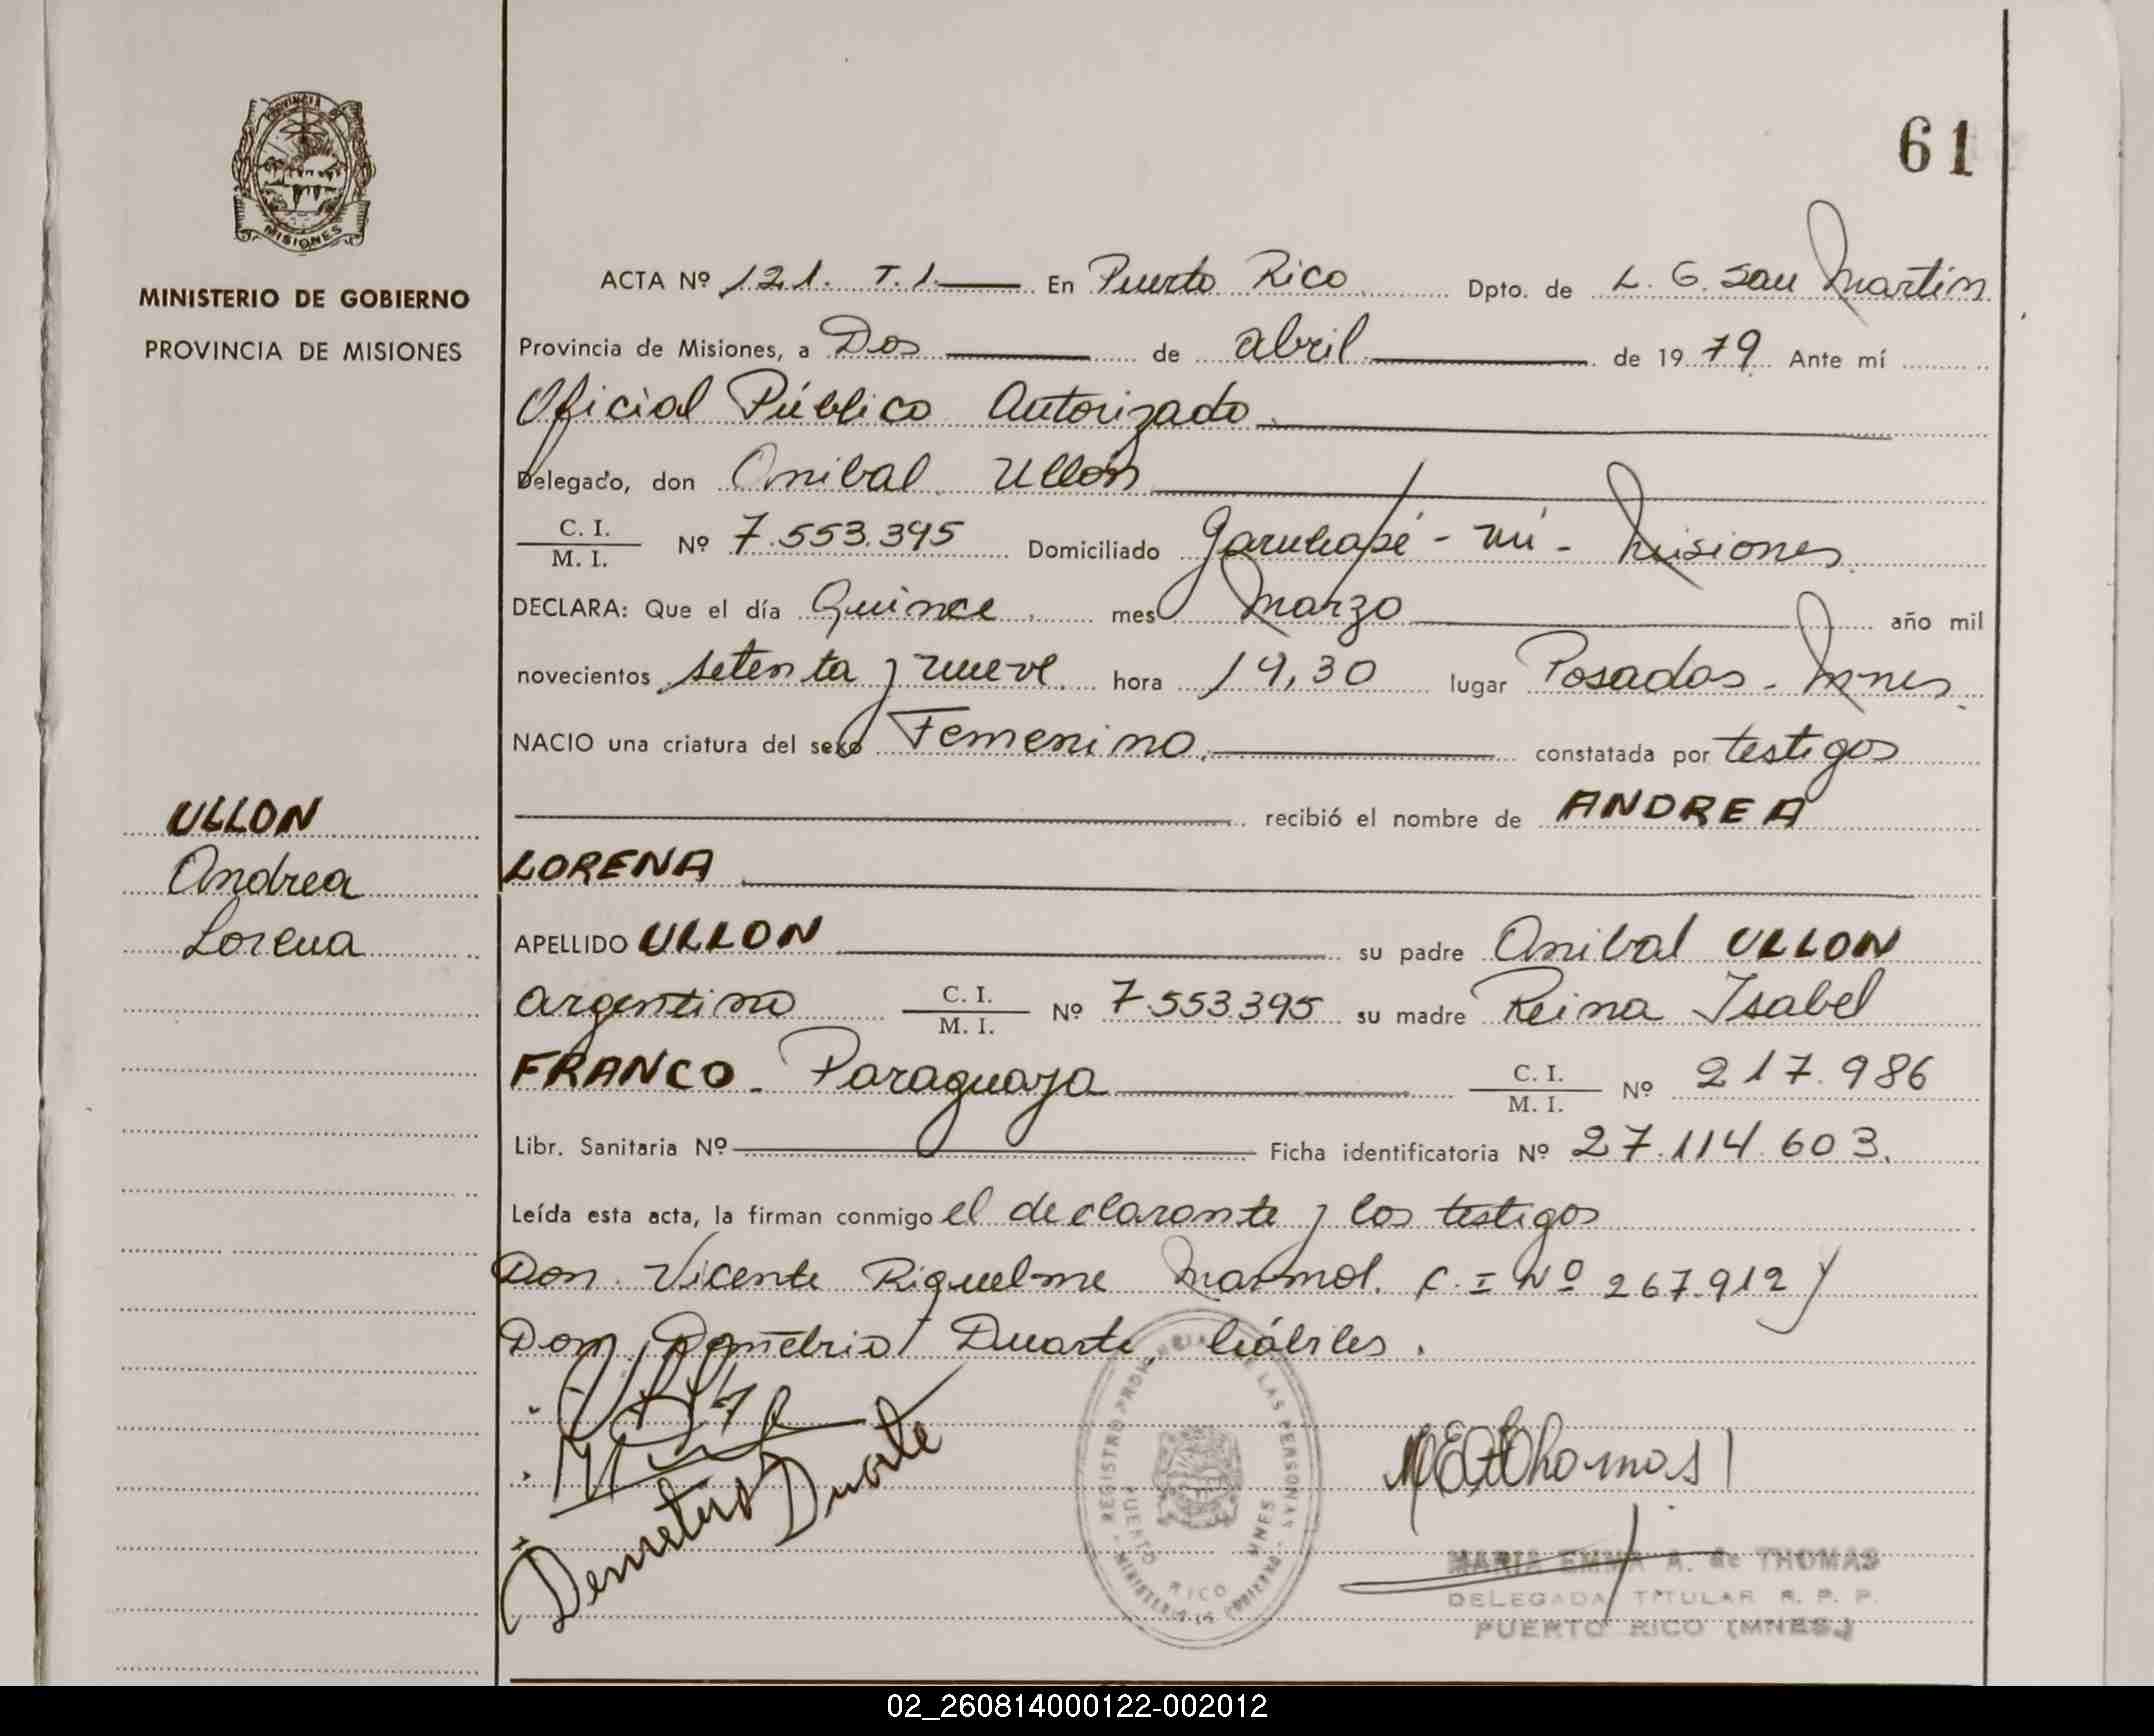 PROVINCIA
MISIONES
MINISTERIO DE GOBIERNO
PROVINCIA DE MISIONES
ULLON
Andrea
Lorena
61
ACTA Nº 121. T.1. En Puerto Rico Dpto. de L. G. San Martin
Provincia de Misiones, a Dos de abril de 1979 Ante mí
Oficial Público Autorizado
Delegado, don Anibal Ullón
C. I. / M. I. Nº 7.553.395 Domiciliado Garuhapé-mí-Misiones
DECLARA: Que el día Quince mes Marzo año mil
novecientos setenta y nueve hora 19,30 lugar Posadas-Mnes
NACIO una criatura del sexo Femenino constatada por testigos
recibió el nombre de ANDREA
LORENA
APELLIDO ULLON su padre Anibal ULLON
argentino C. I. / M. I. Nº 7.553.395 su madre Reina Isabel
FRANCO- Paraguaya C. I. / M. I. Nº 217.986
Libr. Sanitaria Nº Ficha identificatoria Nº 27.114.603.
Leída esta acta, la firman conmigo el declarante y los testigos
Don Vicente Riquelme Marmol. C.I Nº 267.912 y
Don Demetrio Duarte, hábiles.
Demetrio Duarte
REGISTRO PROVINCIAL DE LAS PERSONAS
PUERTO RICO MNES
MINISTERIO DE GOBIERNO
MARIA EMMA A. de THOMAS
DELEGADA TITULAR R. P. P.
PUERTO RICO (MNES.)
02_260814000122-002012